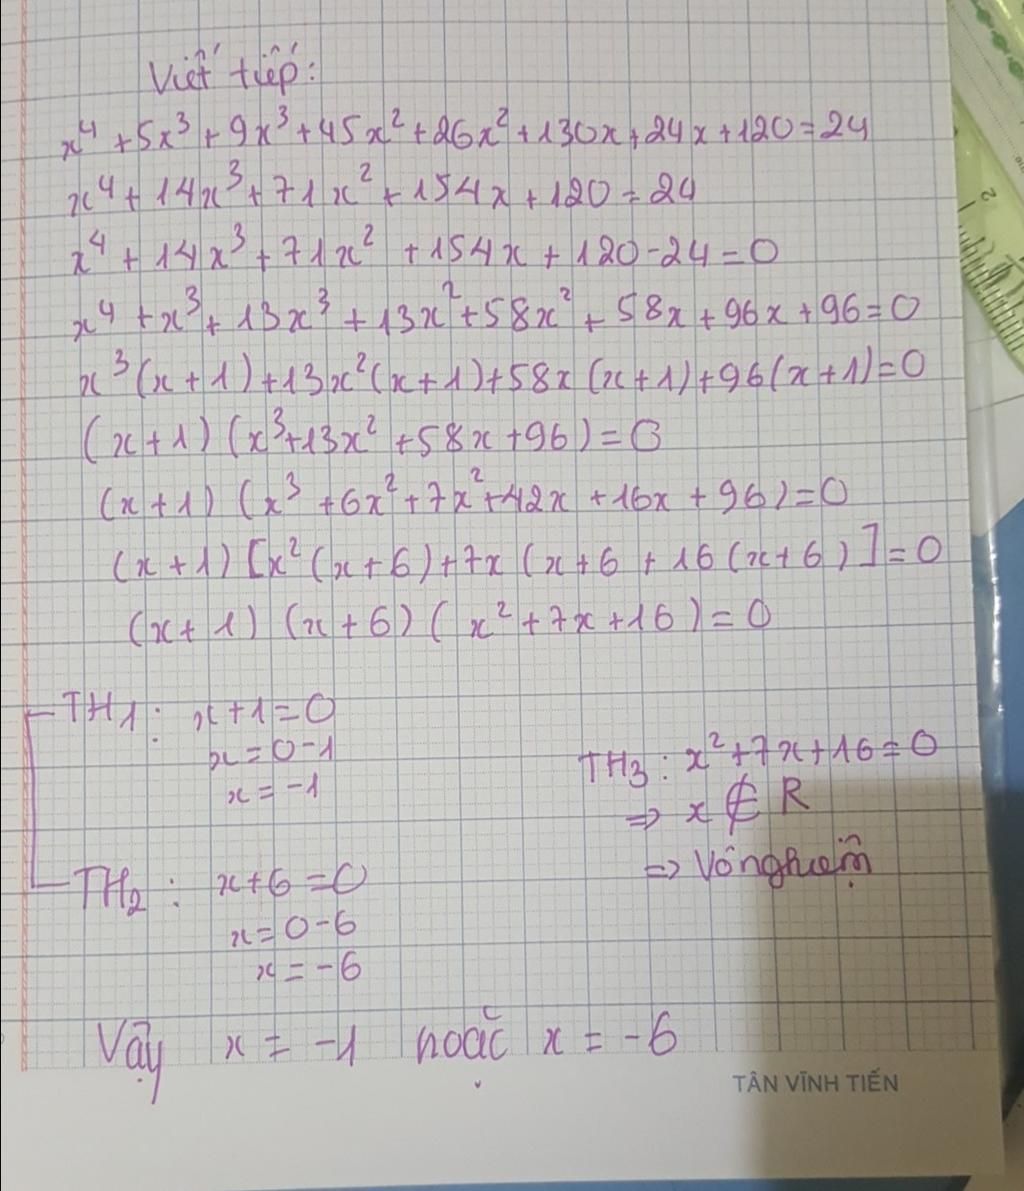 Viết tiếp:
x⁴ + 5x³ + 9x³ + 45x² + 26x² + 130x + 24x + 120 = 24
x⁴ + 14x³ + 71x² + 154x + 120 = 24
x⁴ + 14x³ + 71x² + 154x + 120 - 24 = 0
x⁴ + x³ + 13x³ + 13x² + 58x² + 58x + 96x + 96 = 0
x³(x + 1) + 13x²(x + 1) + 58x(x + 1) + 96(x + 1) = 0
(x + 1) (x³ + 13x² + 58x + 96) = 0
(x + 1) (x³ + 6x² + 7x² + 42x + 16x + 96) = 0
(x + 1) [x²(x + 6) + 7x (x + 6 + 16(x + 6)] = 0
(x + 1) (x + 6) (x² + 7x + 16) = 0
TH1: x + 1 = 0
x = 0 - 1
x = -1
TH2: x + 6 = 0
x = 0 - 6
x = -6
TH3: x² + 7x + 16 = 0
⇒ x ∉ R
⇒ Vô nghiệm
Vậy x = -1 hoặc x = -6
TÂN VĨNH TIẾN